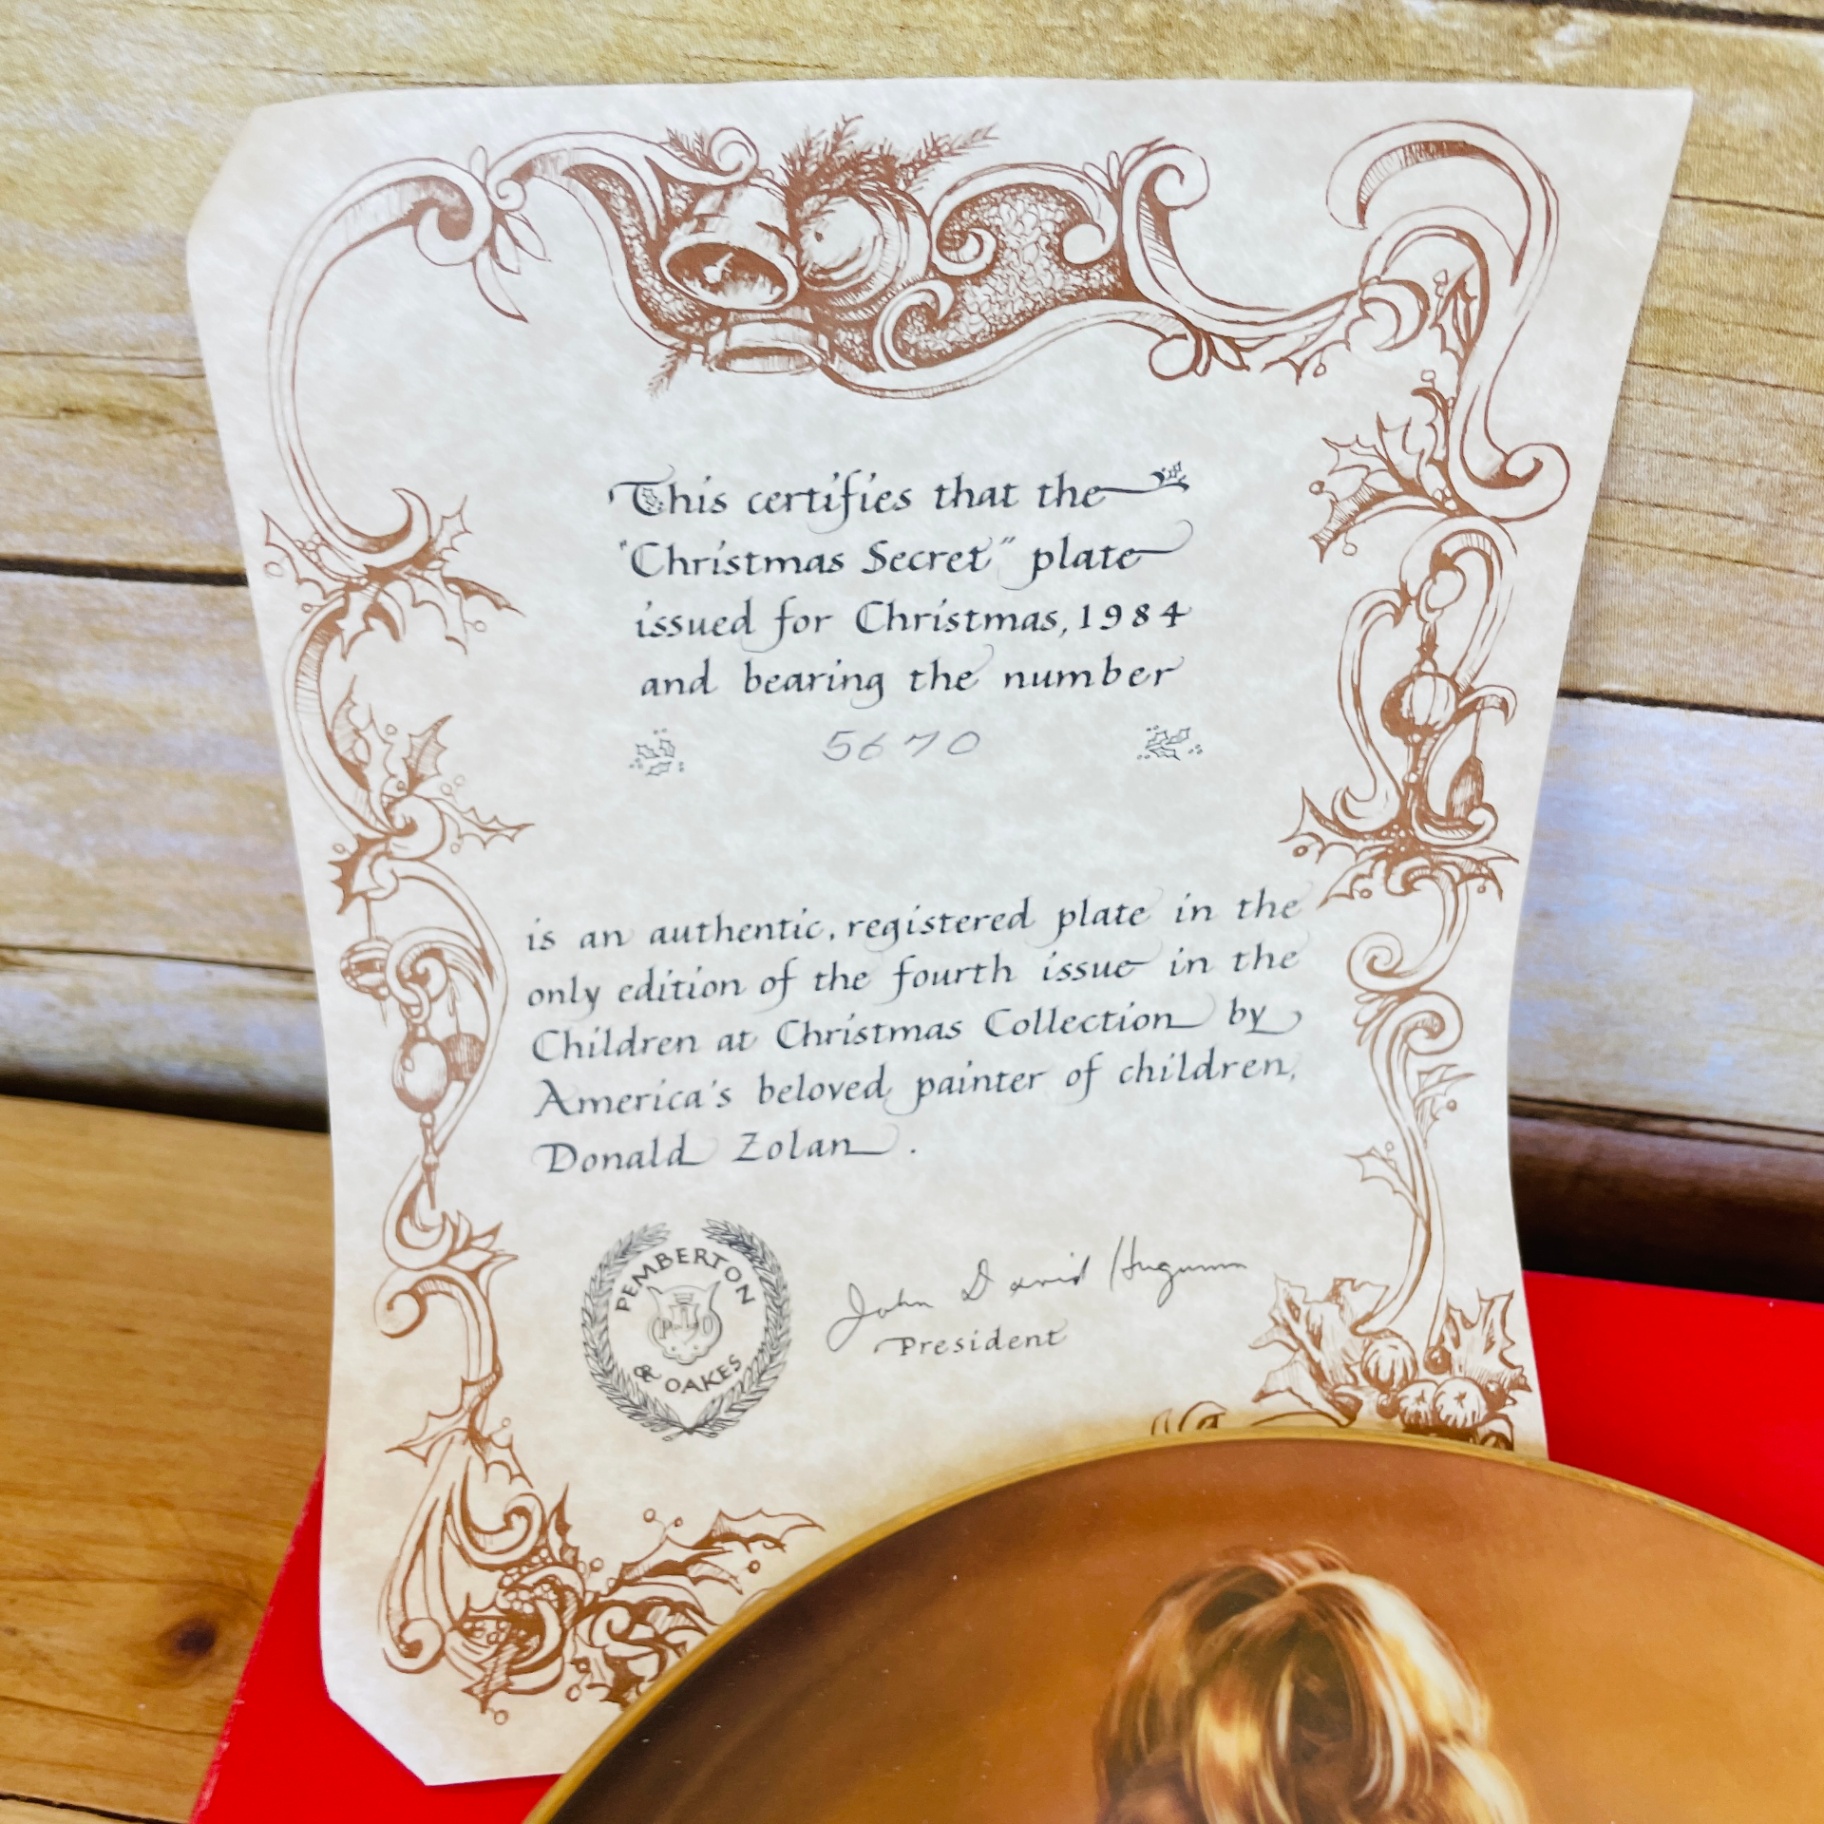 This certifies that the
"Christmas Secret" plate
issued for Christmas, 1984
and bearing the number
5670
is an authentic, registered plate in the
only edition of the fourth issue in the
Children at Christmas Collection by
America's beloved painter of children,
Donald Zolan.
PEMBERTON
& OAKES
John David Hugunin
President